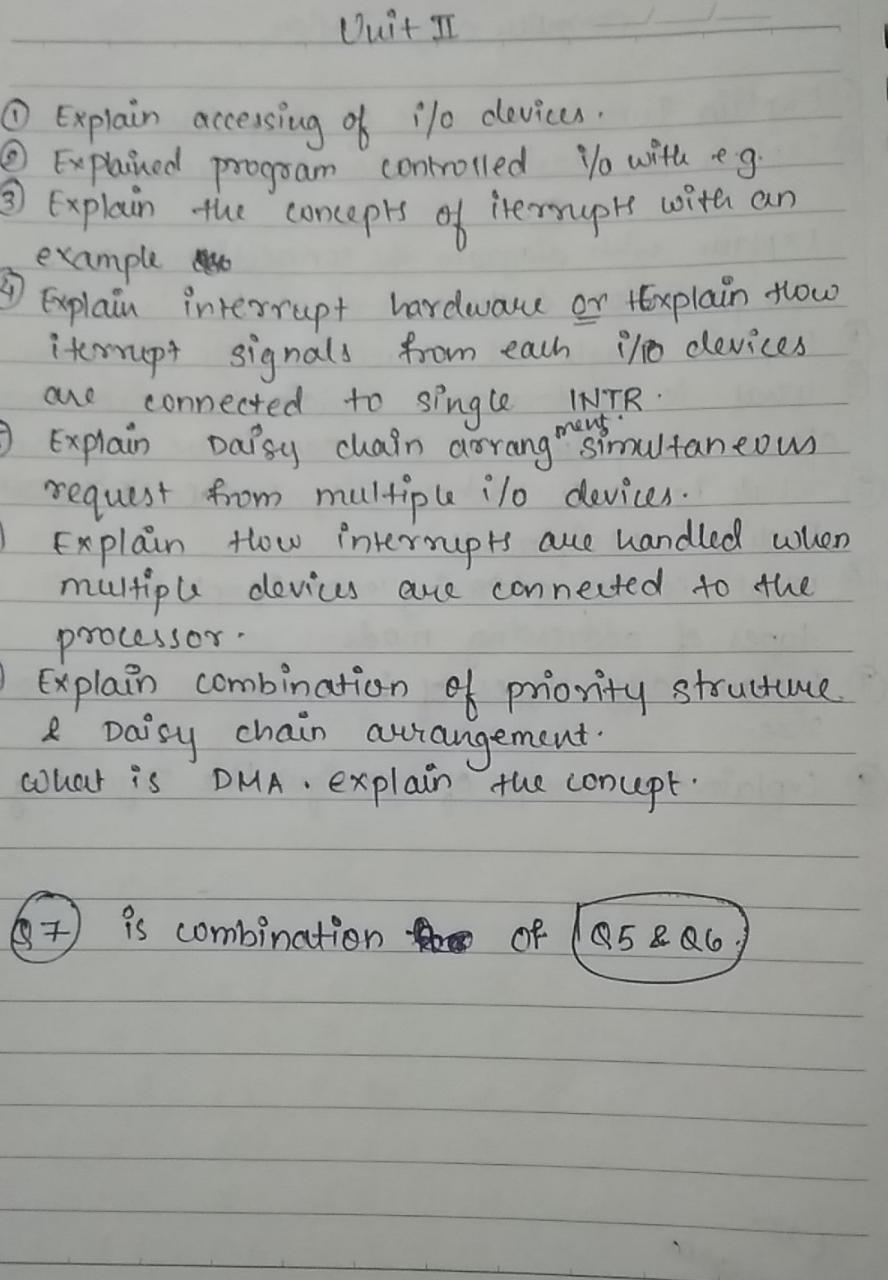 Unit II
① Explain accessing of i/o devices.
② Explained program controlled i/o with e.g.
③ Explain the concepts of iterrupts with an
example
④ Explain interrupt hardware or Explain How
iterrupt signals from each i/o devices
are connected to single INTR.
Explain Daisy chain arrangment. simultaneous
request from multiple i/o devices.
Explain How interrupts are handled when
multiple devices are connected to the
processor.
Explain combination of priority structure
& Daisy chain arrangement.
What is DMA. explain the concept.
Q7 is combination of Q5 & Q6.